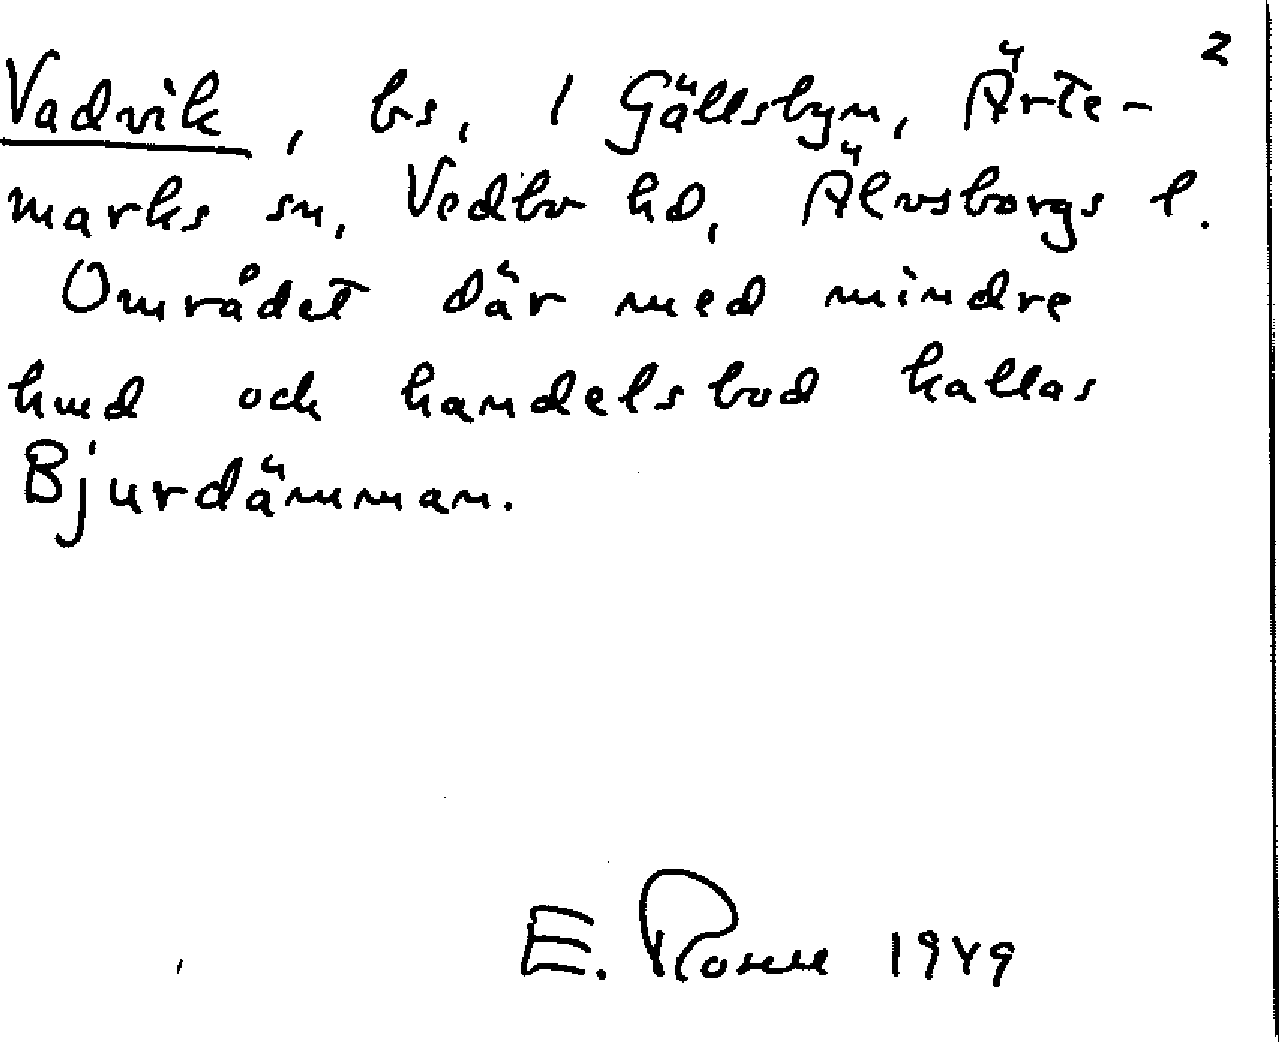 2
Vadvik, bs, / Gällsbyn, Ärte-
marks sn, Vedbo hd, Älvsborgs l.
Området där med mindre
hmd och handelsbod kallas
Bjurdämman.
E. 1949